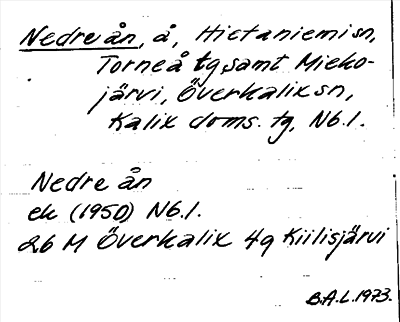 Nedre ån, å, Hietaniemi sn,
Torneå tg, samt Mieko-
järvi, Överkalix sn,
Kalix doms. tg, Nb.l.
Nedre ån
ek (1950) Nb.l.
26 M Överkalix 4g Kiilisjärvi
B.A.L. 1973.